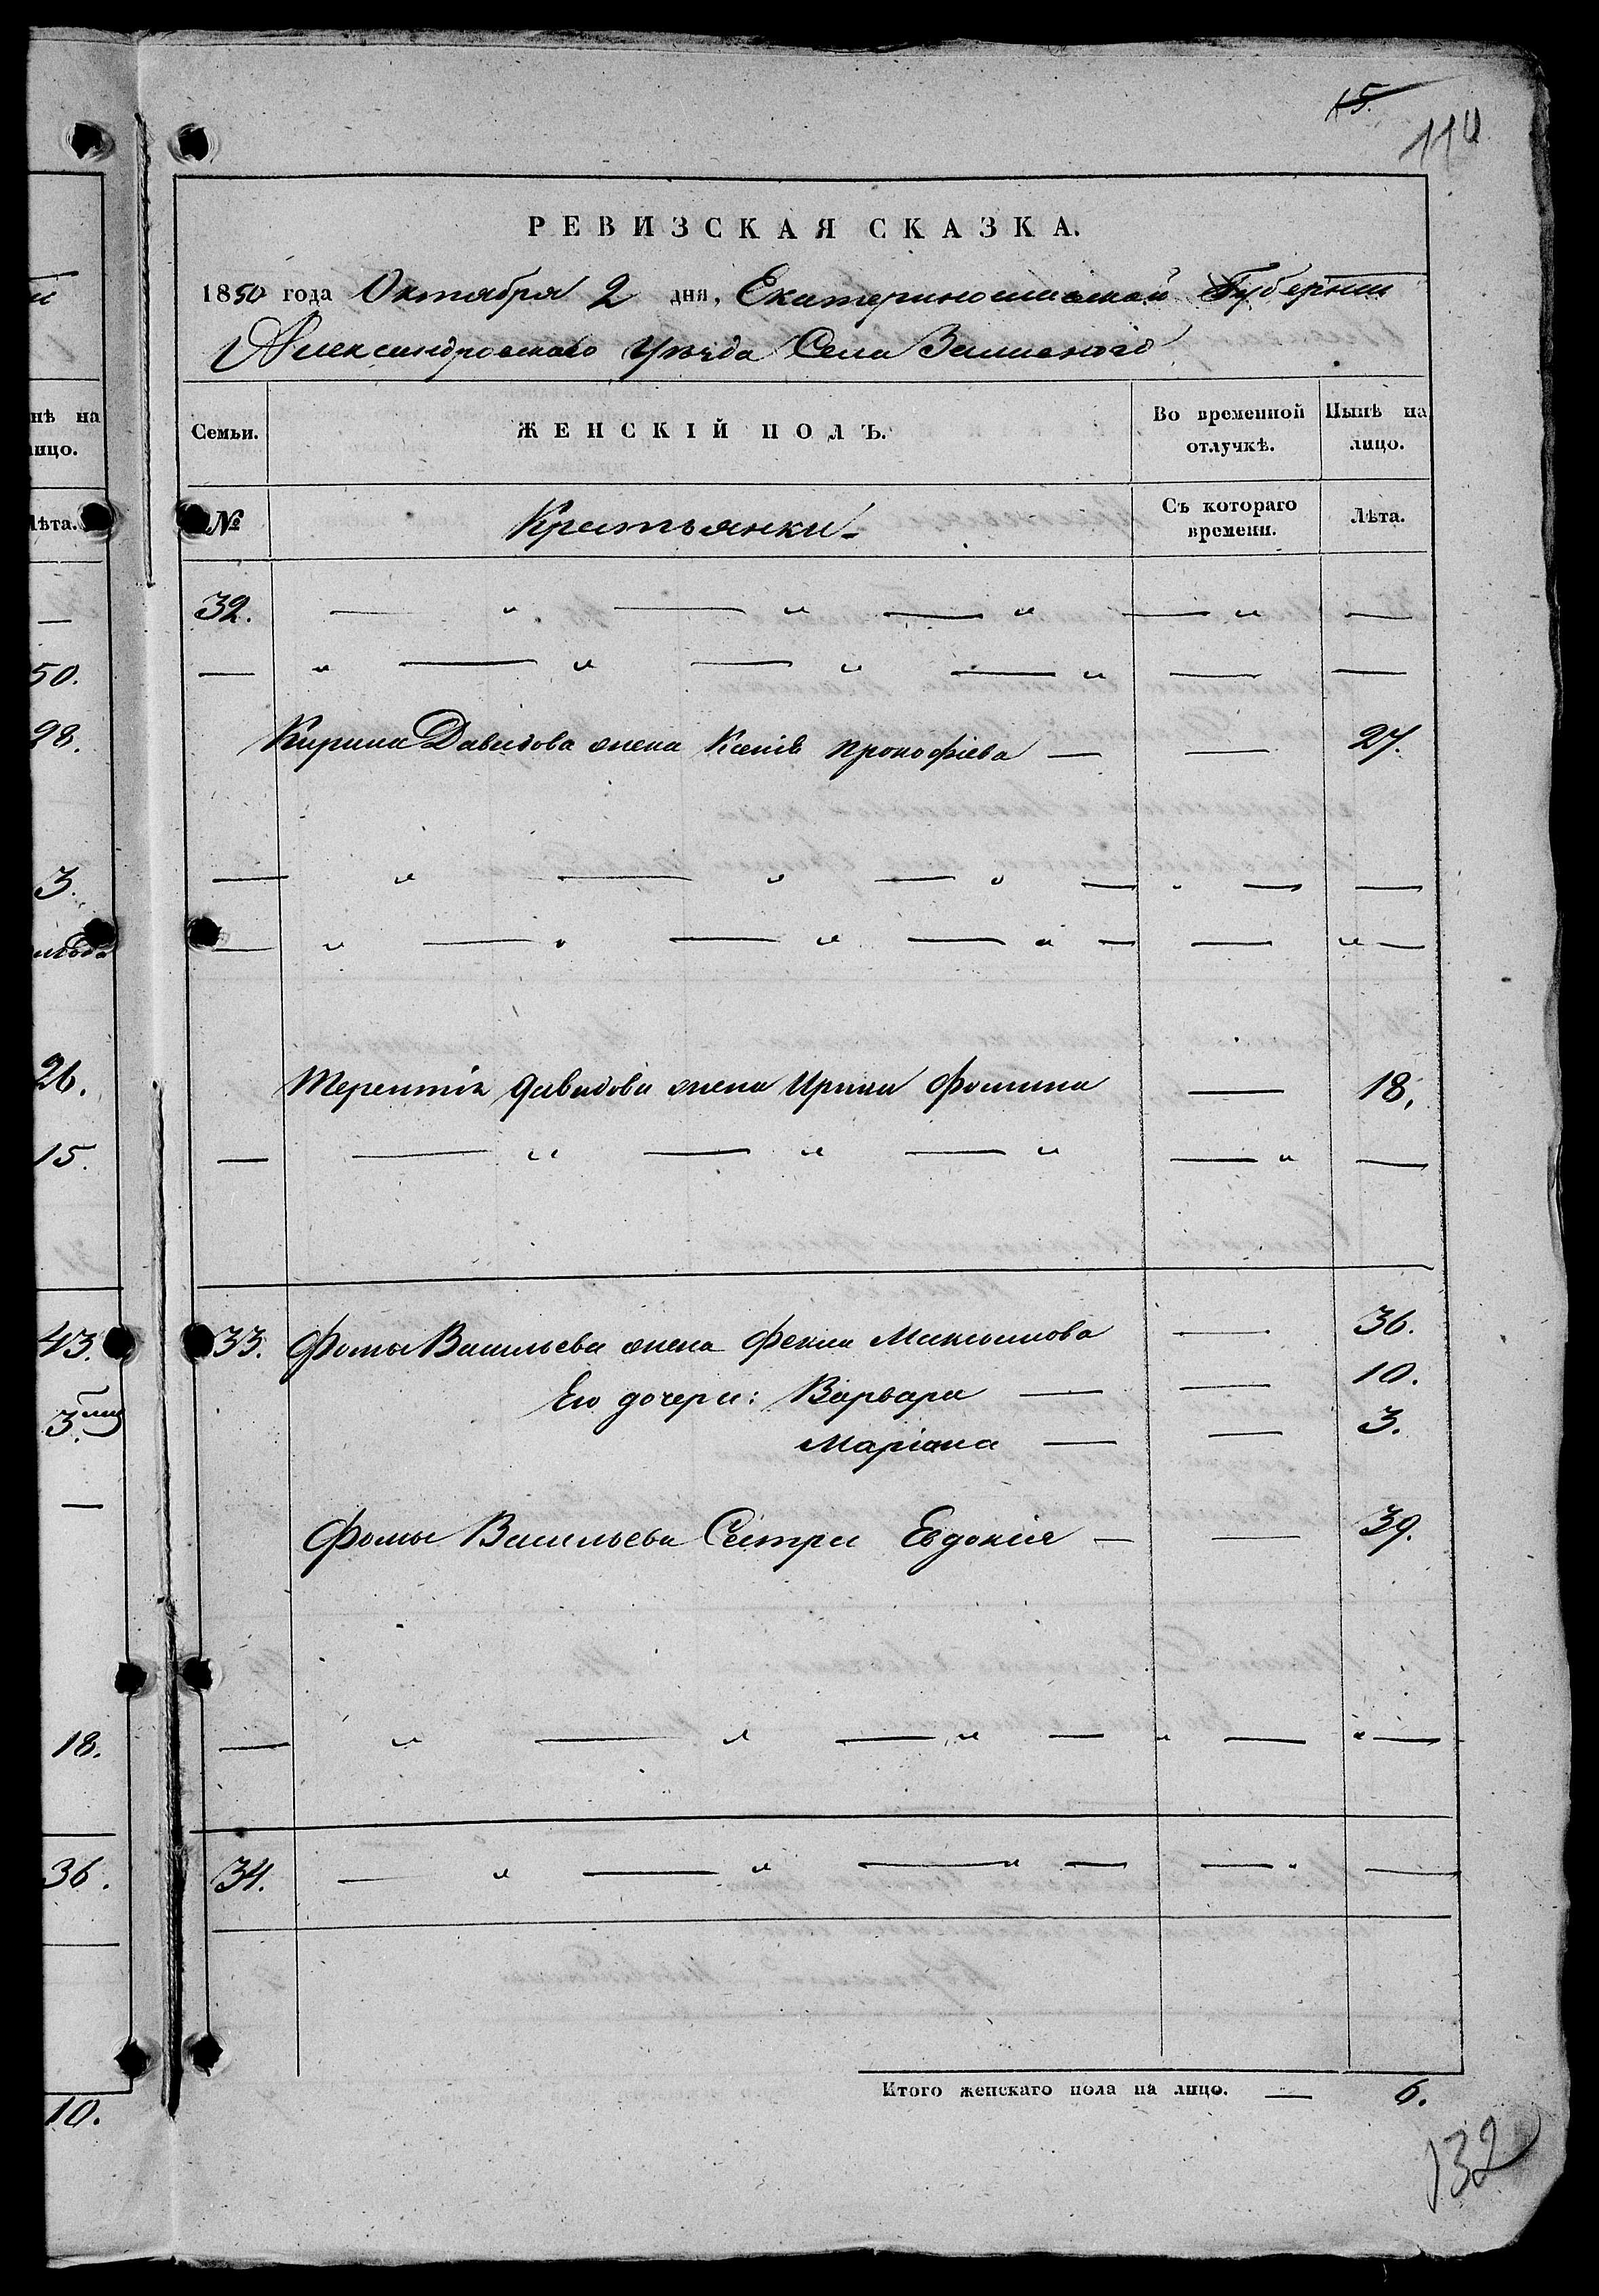 15.
114
РЕВИЗСКАЯ СКАЗКА.
1850 года Октября 2 дня, Екатеринославской Губернии
Александровскаго Уѣзда Села
Семьи. ЖЕНСКІЙ ПОЛЪ. Во временной отлучкѣ. Нынѣ на лицо.
№ Крестьянки Съ котораго времени. Лѣта.
32. — " — " — " — " —
— " — " — " — " — —
Кирила Давидова жена Ксенія Прокофіева — — 27.
— " — " — " — " — —
— " — " — " — " — — " —
Терентія Давидова жена Ирина Фомина — 18.
— — " — " — " — " —
33. Фомы Васильева жена Фекла Максимова — 36.
Его дочери: Варвара — — 10.
Маріана — — 3.
Фомы Васильева Сестра Евдокія — — 39.
— " — " — " — " — " —
34. — " — " — " — — " —
Итого женскаго пола на лицо. — 6.
132
нѣ на
лицо.
Лѣта.
—
50.
28.
3.
26.
15.
43.
3
—
18.
36.
10.